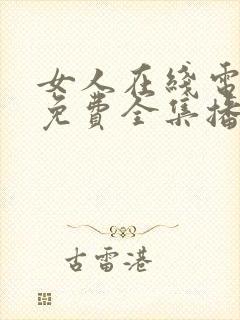 女人在线电
免费全集播
古雷港